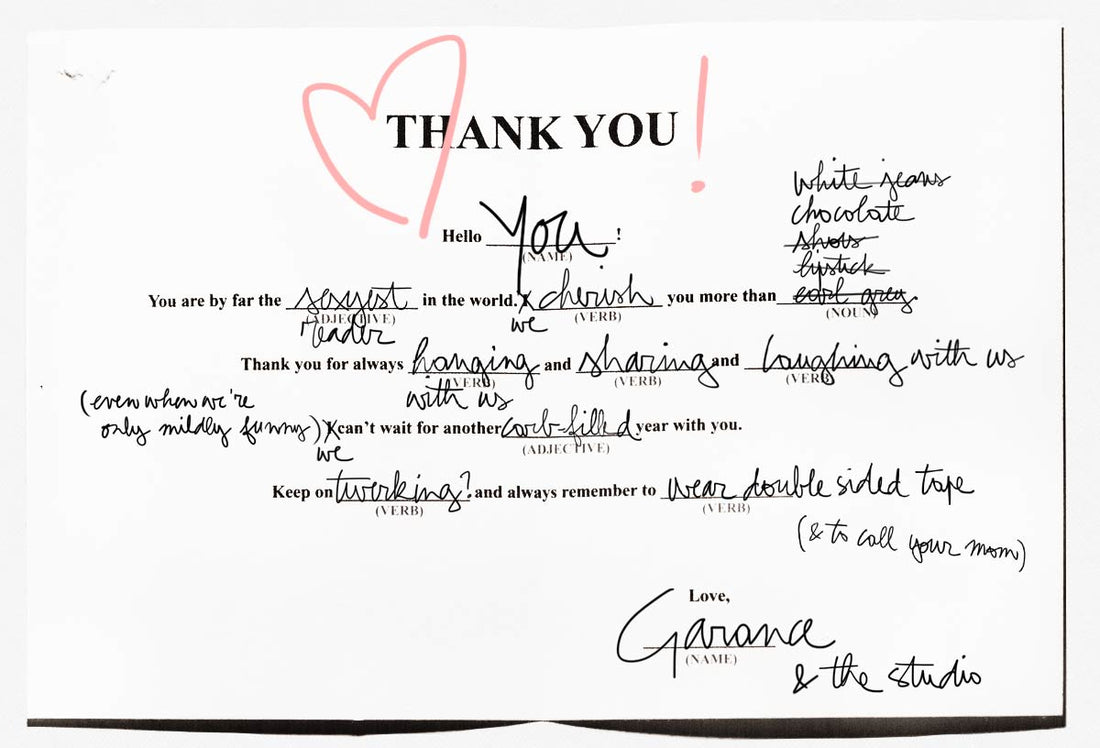 THANK YOU!
white jeans
chocolate
shoes
lipstick
Hello You!
(NAME)
You are by far the sexyest in the world. X cherish you more than earl grey.
(ADJECTIVE) (VERB) (NOUN)
reader we
Thank you for always hanging and sharing and laughing with us
(VERB) (VERB) (VERB)
with us
(even when we're
only mildly funny) X can't wait for another carb-filled year with you.
we (ADJECTIVE)
Keep on twerking? and always remember to wear double sided tape
(VERB) (VERB)
(& to call your mom)
Love,
Garance
(NAME)
& the studio